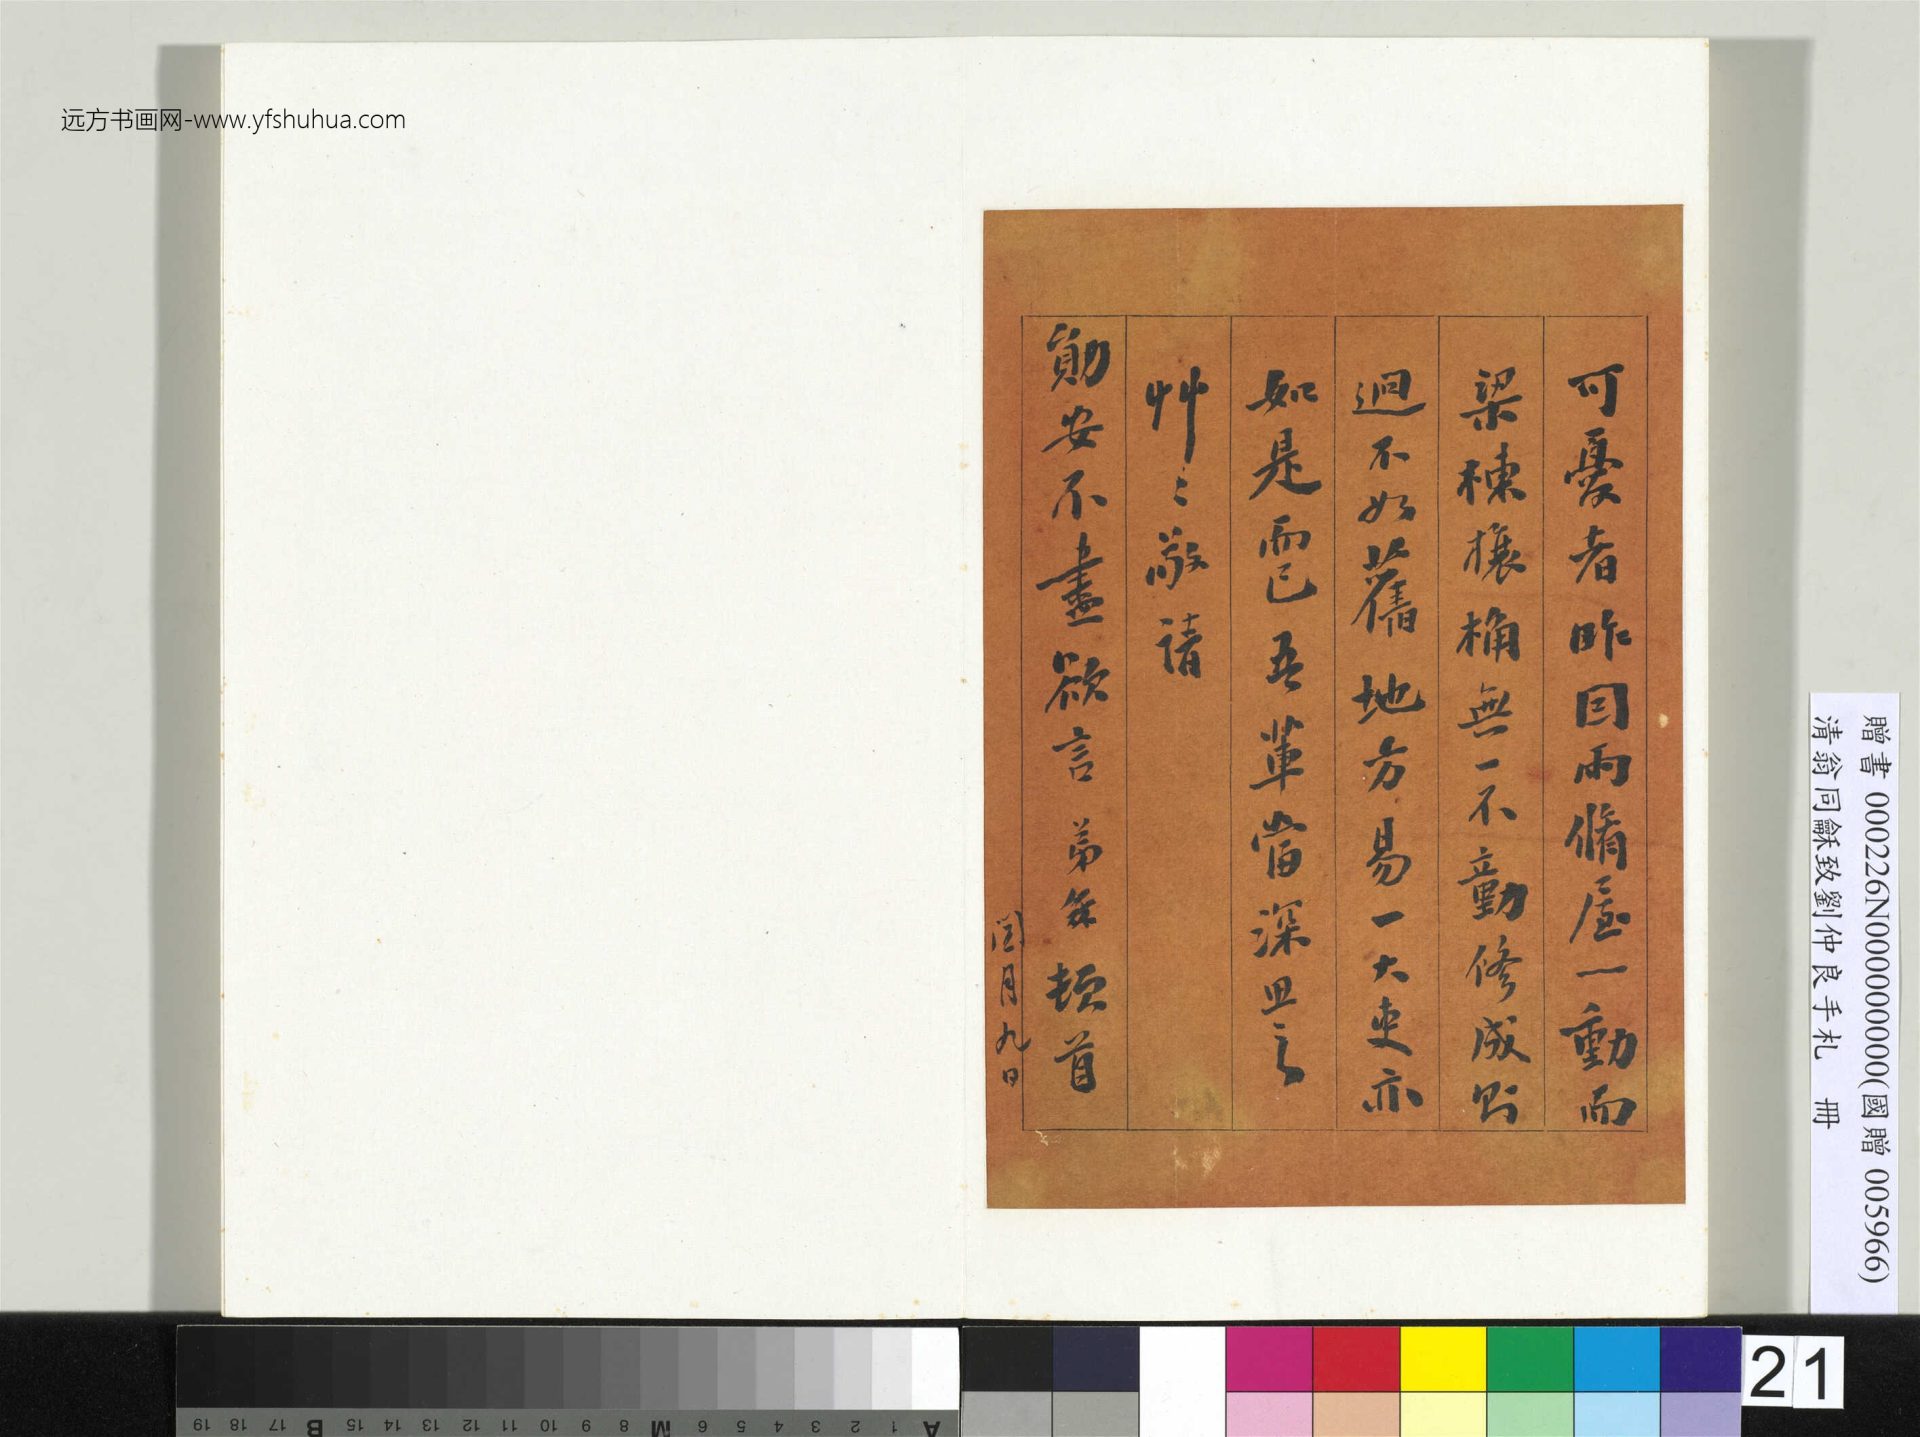 远方书画网-www.yfshuhua.com
可憂者昨因雨脩屋一動而
梁棟欀桷無一不動修成則
迥不如舊地方易一大吏亦
如是而已吾輩當深思之
艸〻敬請
勛安不盡欲言 弟 頓首
閏月九日
贈書 000226N000000000(國贈 005966)
清翁同龢致劉仲良手札 冊
21
A 1 2 3 4 5 6 M 8 9 10 11 12 13 14 15 B 17 18 19